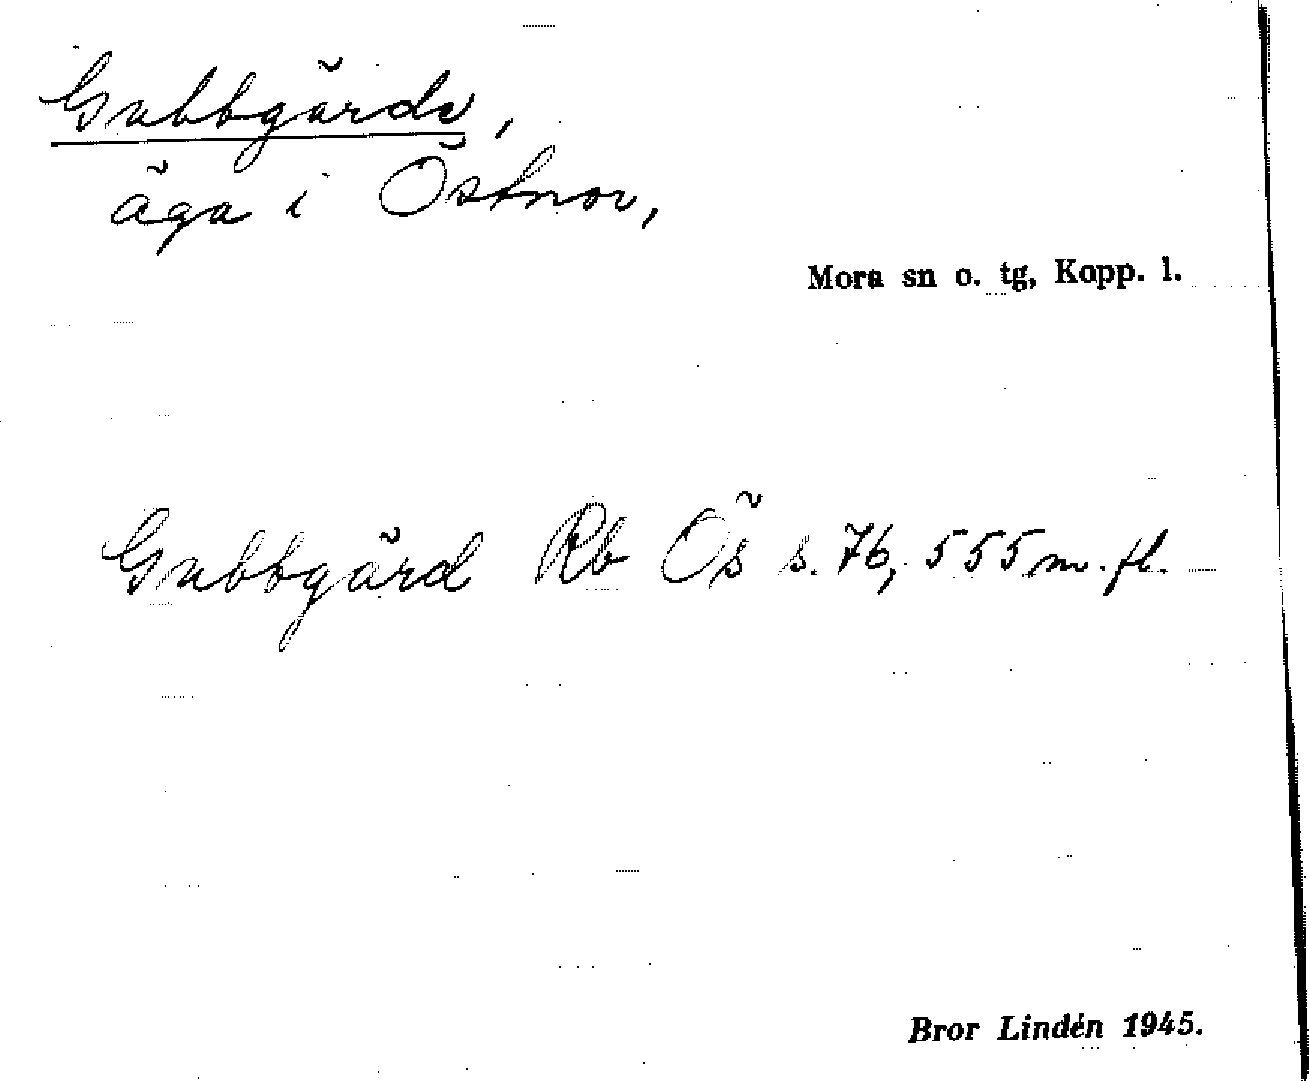 Gubbgärde,
äga i Östnor,
Mora sn o. tg, Kopp. l.
Gubbgärd Rb Ös s. 76, 555 m. fl.
Bror Lindén 1945.